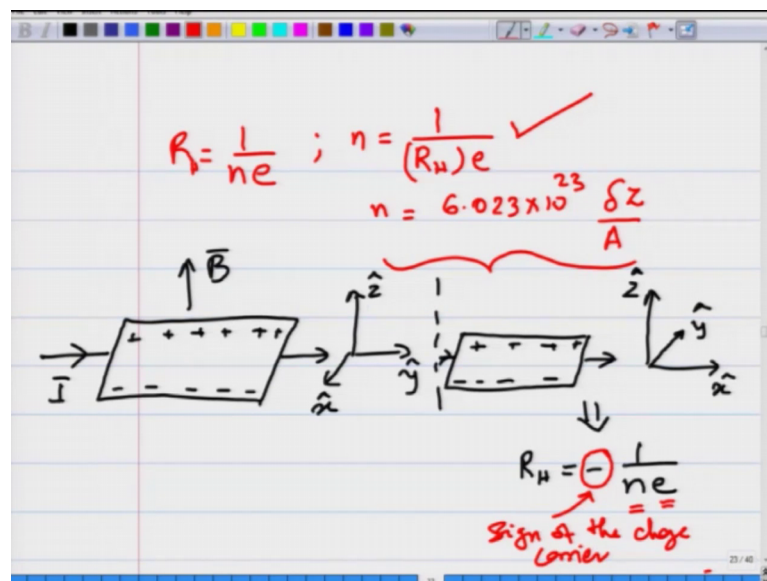 B I
R_H = 1/ne ; n = 1/(R_H)e ✓
n = 6.023×10^23 δZ/A
B̄
+ + + + + +
- - - - -
Ī
ẑ
ŷ
x̂
+ + + +
- - - -
ẑ
ŷ
x̂
⇓
R_H = - 1/ne
Sign of the charge
carrier
23/40